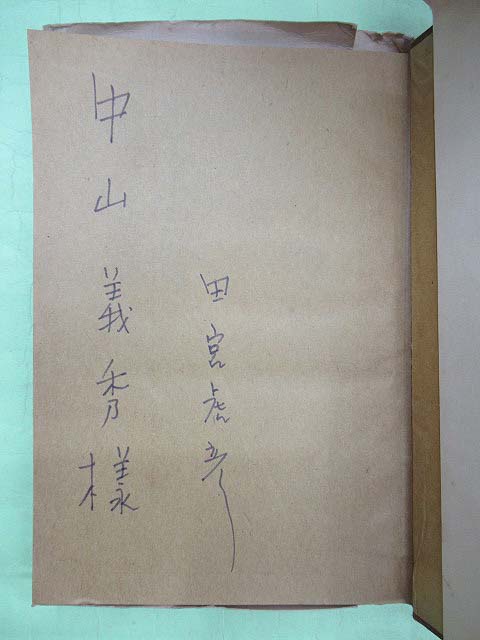 田宮虎彦
中山義秀様